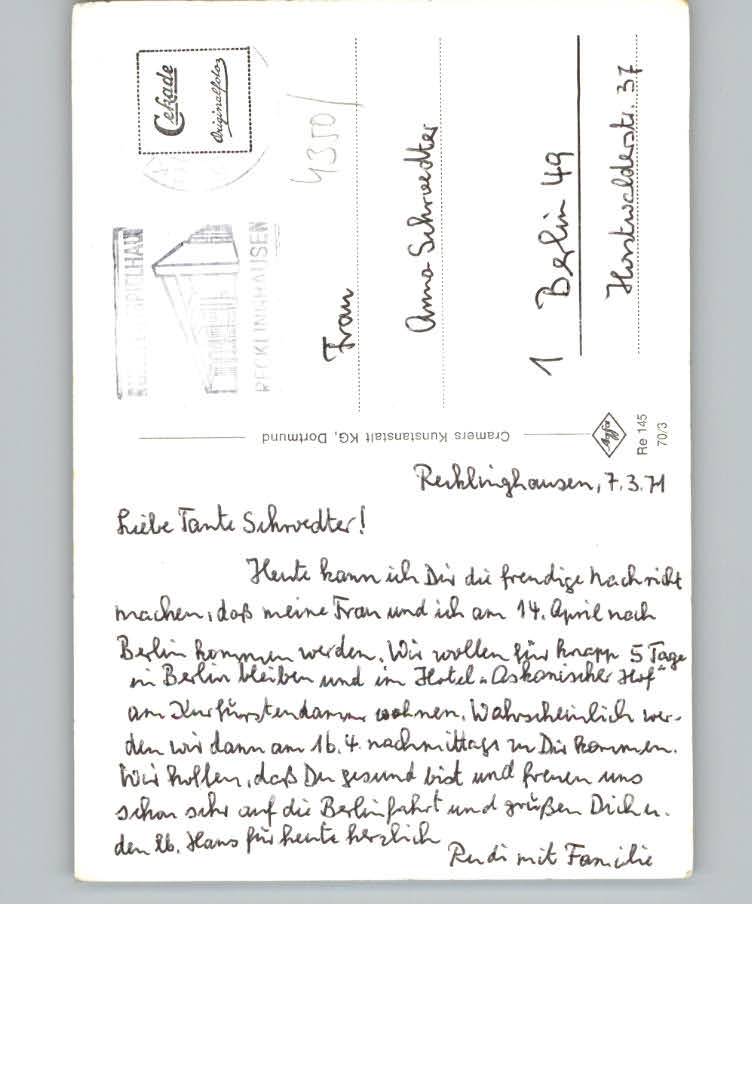 Cekade
Originalfotos
4350/
SPIELHAUS
RECKLINGHAUSEN
Frau
Anna Schroedter
1 Berlin 49
Horstwalderstr. 37
Cramers Kunstanstalt KG, Dortmund
Agfa
Re 145
70/3
Recklinghausen, 7.3.71
Liebe Tante Schroedter!
Heute kann ich Dir die freudige Nachricht
machen, daß meine Frau und ich am 14. April nach
Berlin kommen werden. Wir wollen für knapp 5 Tage
in Berlin bleiben und im Hotel „Askanischer Hof“
am Kurfürstendamm wohnen. Wahrscheinlich wer-
den wir dann am 16.4. nachmittags zu Dir kommen.
Wir hoffen, daß Du gesund bist und freuen uns
schon sehr auf die Berlinfahrt und grüßen Dich u.
den lb. Hans für heute herzlich
Rudi mit Familie